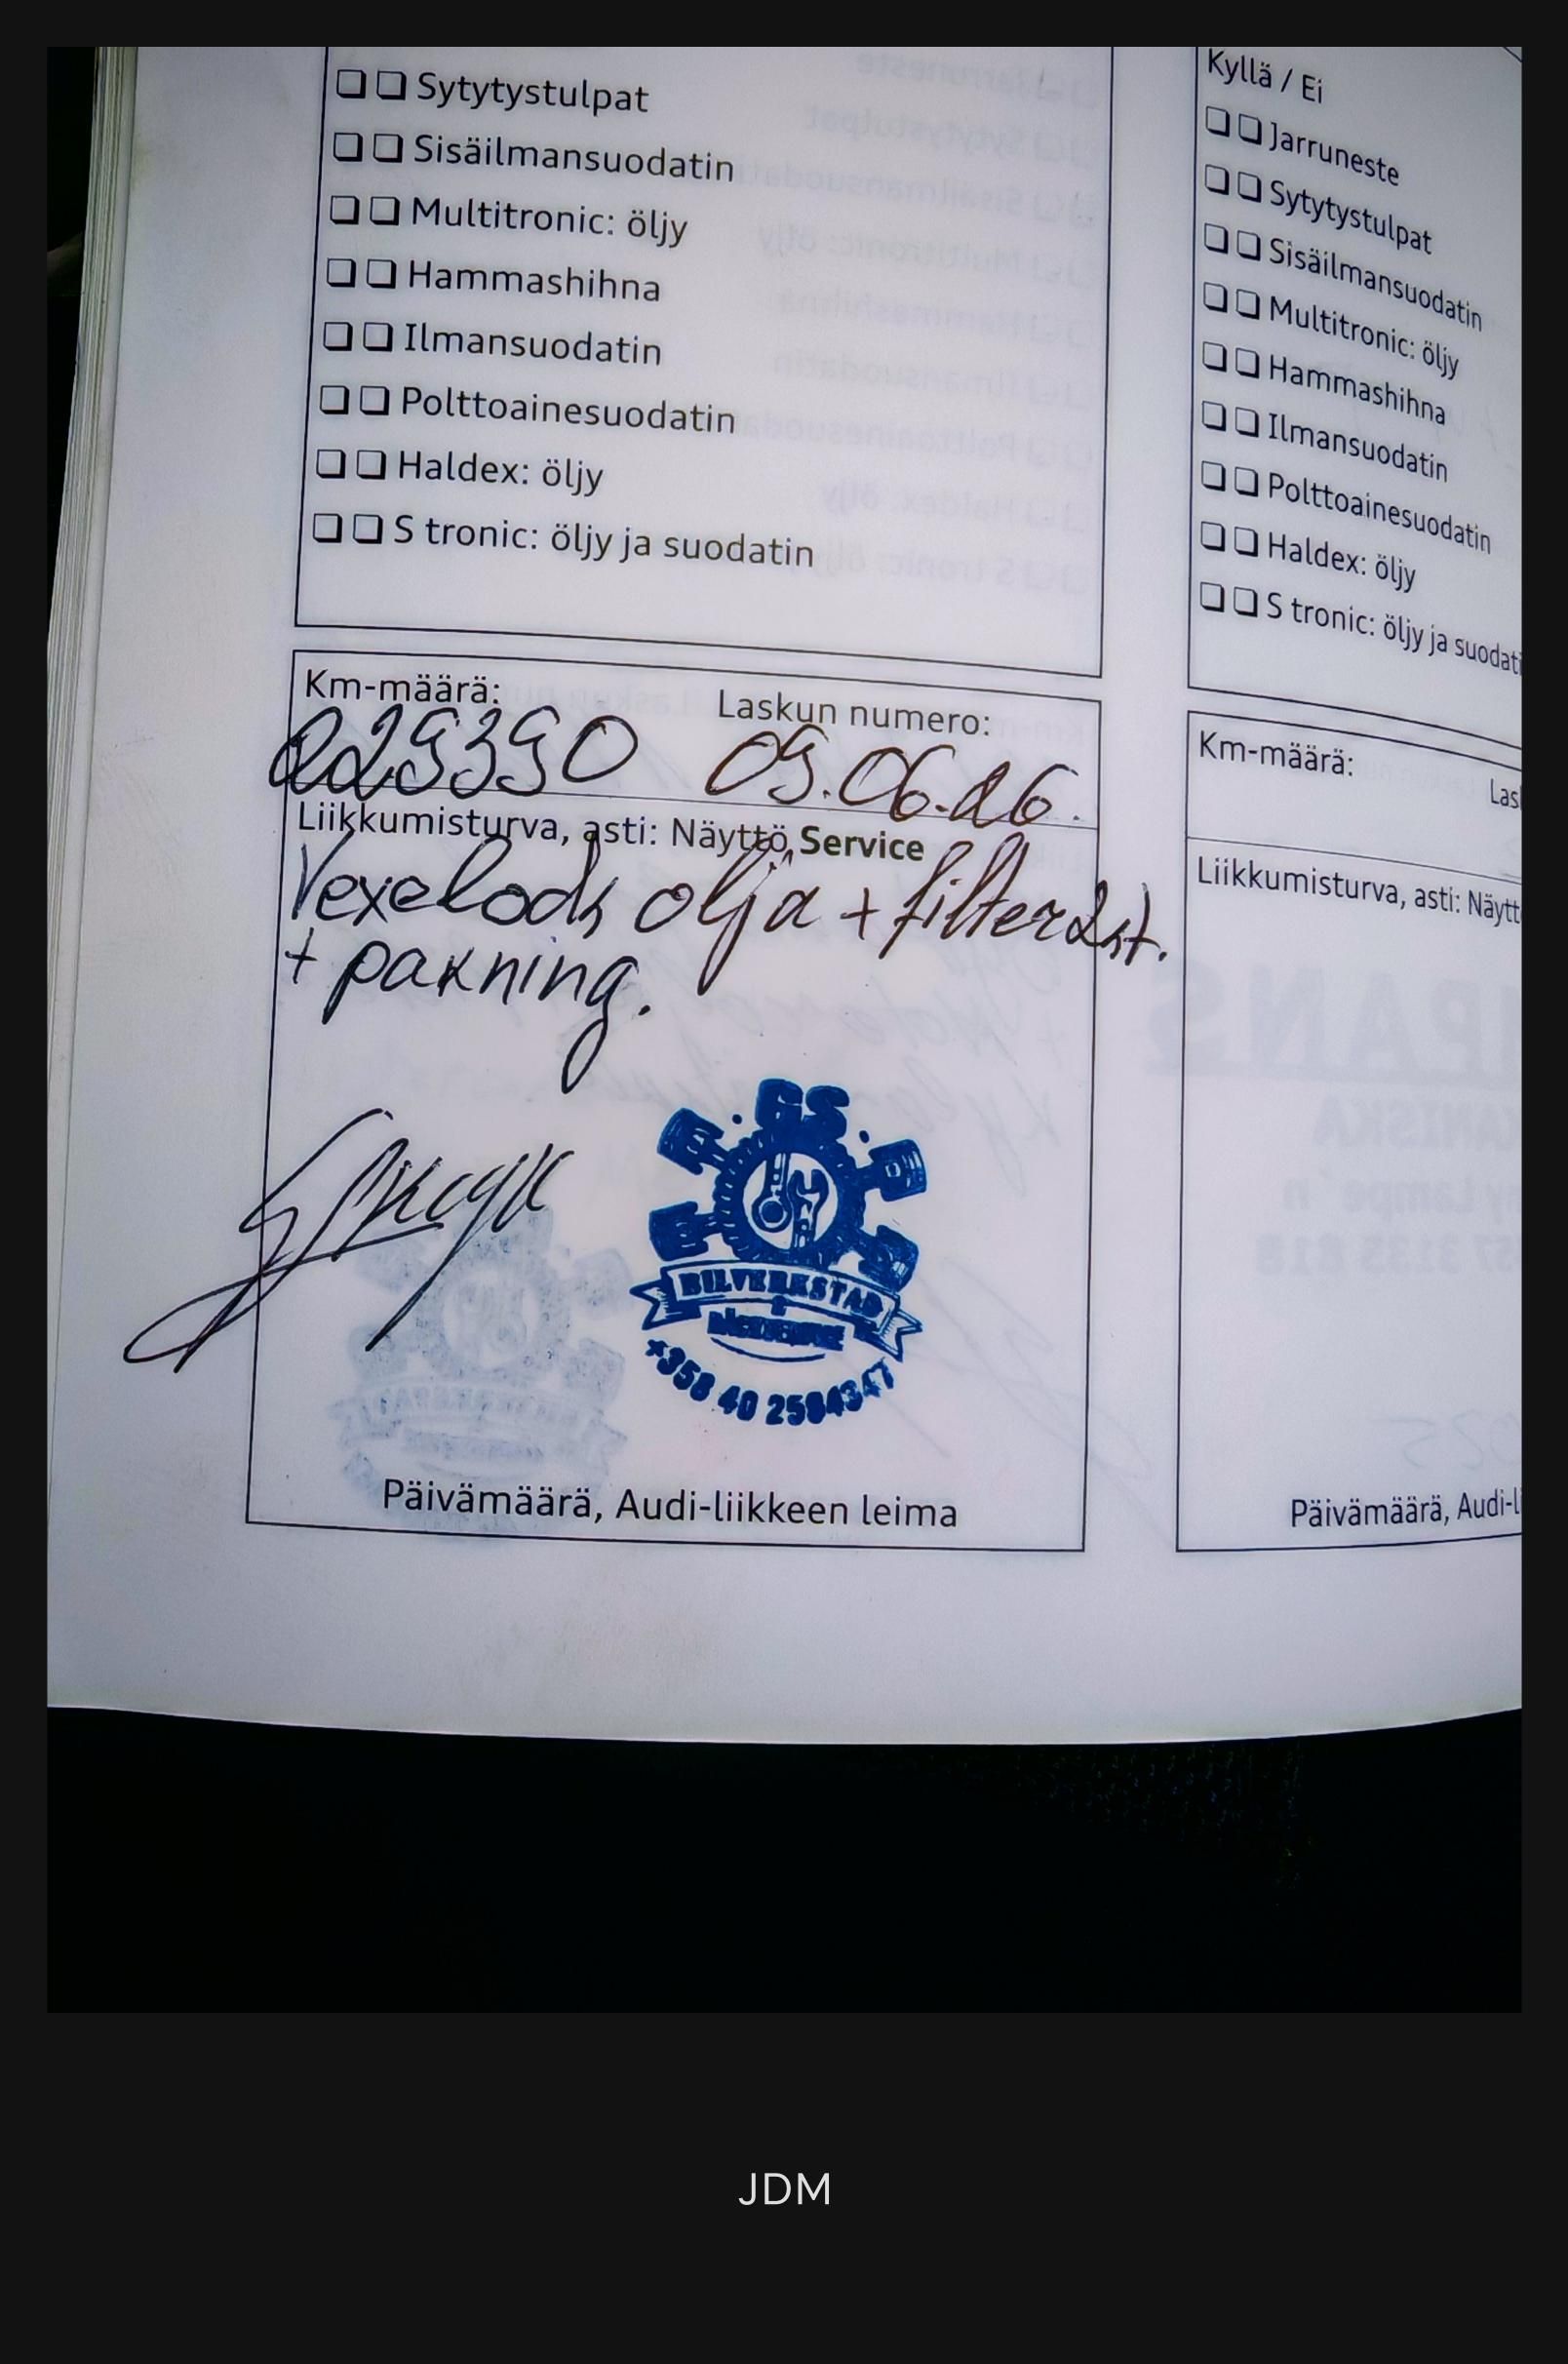 Sytytystulpat
Sisäilmansuodatin
Multitronic: öljy
Hammashihna
Ilmansuodatin
Polttoainesuodatin
Haldex: öljy
S tronic: öljy ja suodatin
Km-määrä: Laskun numero:
229390 09.06.26.
Liikkumisturva, asti: Näyttö Service
Vexelods olja + filter 2st.
+ pakning.
GS
BILVERKSTAD
+358 40 2584347
Päivämäärä, Audi-liikkeen leima
Kyllä / Ei
Jarruneste
Sytytystulpat
Sisäilmansuodatin
Multitronic: öljy
Hammashihna
Ilmansuodatin
Polttoainesuodatin
Haldex: öljy
S tronic: öljy ja suodati
Km-määrä:
Las
Liikkumisturva, asti: Näytt
Päivämäärä, Audi-l
JDM